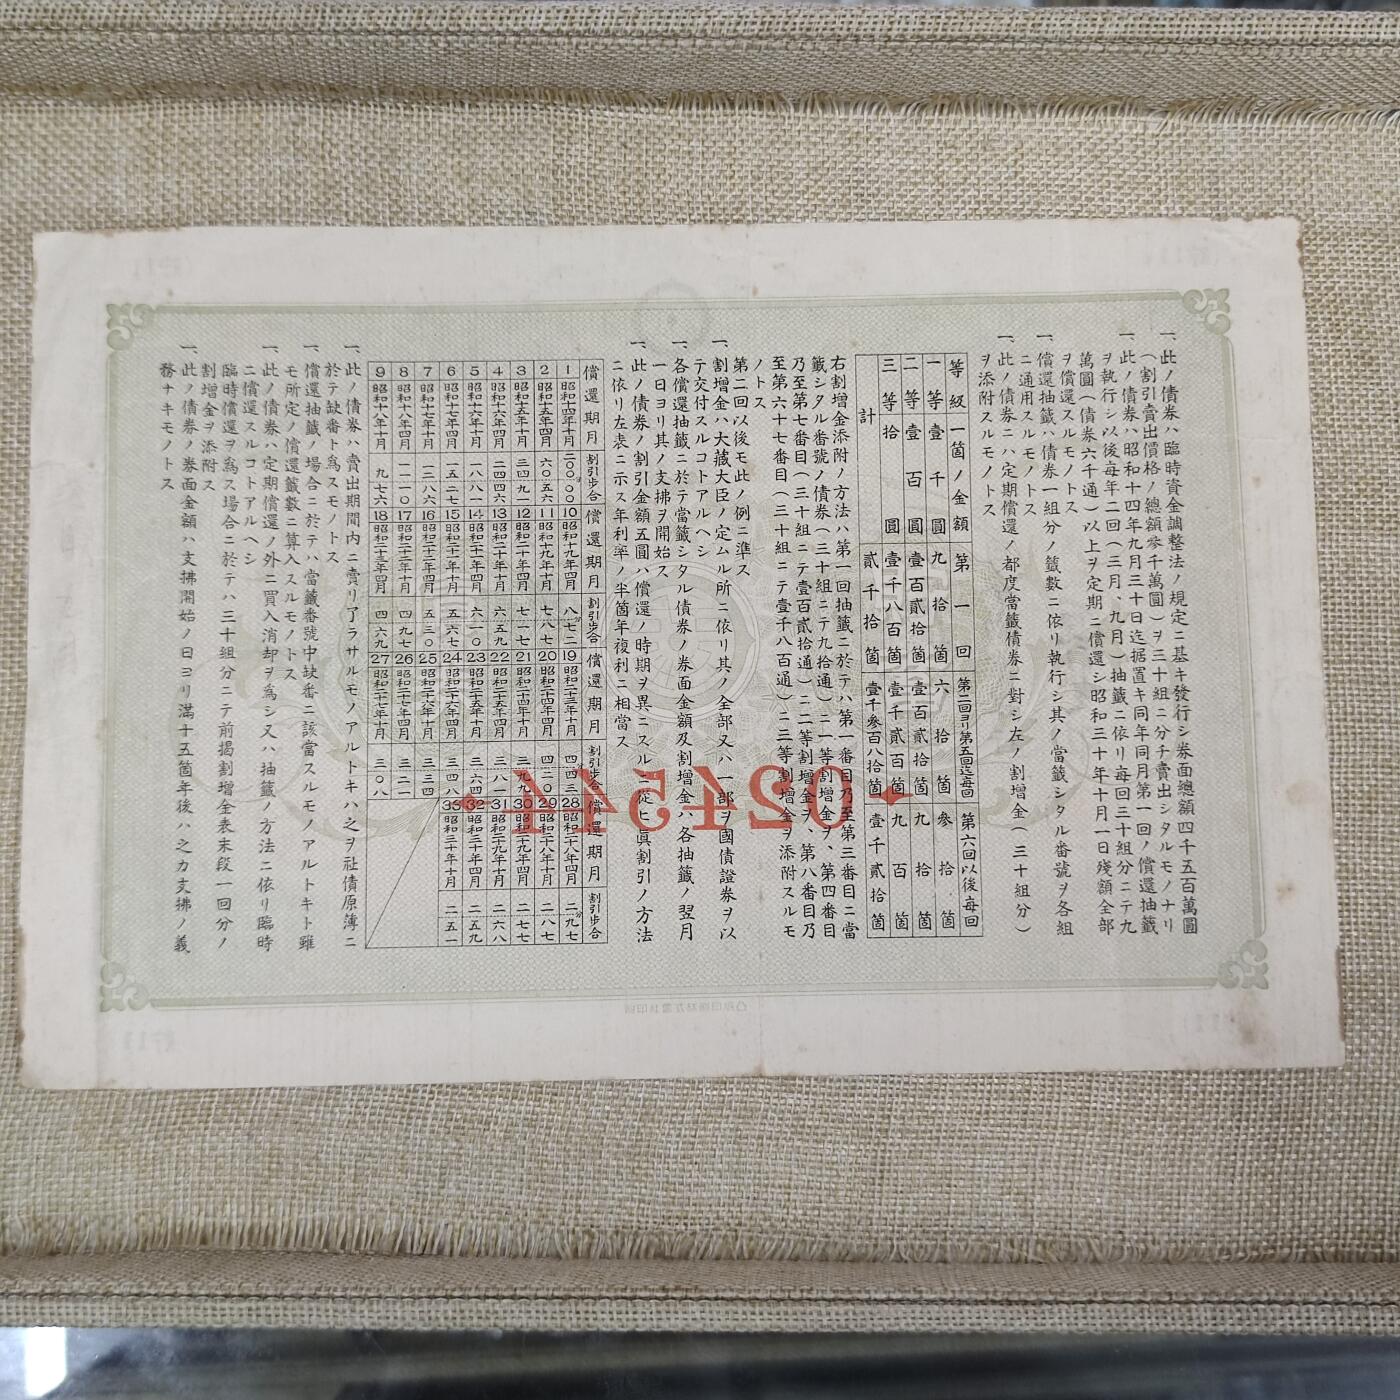 一、此ノ債券ハ臨時資金調整法ノ規定ニ基キ發行シ券面總額四千五百萬圓
(割引賣出價格ノ總額參千萬圓)ヲ三十組ニ分チ賣出シタルモノナリ
一、此ノ債券ハ昭和十四年九月三十日迄据置キ同年同月第一回ノ償還抽籤
ヲ執行シ以後毎年二回(三月、九月)抽籤ニ依リ毎回三十組分ニテ九
萬圓(債券六千通)以上ヲ定期ニ償還シ昭和三十年十月一日殘額全部
ヲ償還スルモノトス
一、償還抽籤ハ債券一組分ノ籤數ニ依リ執行シ其ノ當籤シタル番號ヲ各組
ニ通用スルモノトス
一、此ノ債券ニハ定期償還ノ都度當籤債券ニ對シ左ノ割增金(三十組分)
ヲ添附スルモノトス
等級 一箇ノ金額 第一回 第二回ヨリ第五回迄毎回 第六回以後毎回
一等 壹千圓 九拾箇 六拾箇 參拾箇
二等 壹百圓 壹百貳拾箇 壹百貳拾箇 九拾箇
三等 拾圓 壹千八百箇 壹千貳百箇 九百箇
計 貳千拾箇 壹千參百八拾箇 壹千貳拾箇
右割增金添附ノ方法ハ第一回抽籤ニ於テハ第一番目乃至第三番目ニ當
籤シタル番號ノ債券(三十組ニテ九拾通)ニ一等割增金ヲ、第四番目
乃至第七番目(三十組ニテ壹百貳拾通)ニ二等割增金ヲ、第八番目乃
至第六十七番目(三十組ニテ壹千八百通)ニ三等割增金ヲ添附スルモ
ノトス
第二回以後モ此ノ例ニ準ス
一、割增金ハ大藏大臣ノ定ムル所ニ依リ其ノ全部又ハ一部ヲ國債證券ヲ以
テ交付スルコトアルヘシ
一、各償還抽籤ニ於テ當籤シタル債券ノ券面金額及割增金ハ各抽籤ノ翌月
一日ヨリ其ノ支拂ヲ開始ス
一、此ノ債券ノ割引金額五圓ハ償還ノ時期ヲ異ニスルニ從ヒ眞割引ノ方法
ニ依リ左表ニ示ス年利率ノ半箇年複利ニ相當ス
償還期月 割引步合 償還期月 割引步合 償還期月 割引步合 償還期月 割引步合
1 昭和十四年十月 二〇〇〇〇 10 昭和十九年四月 八七二 19 昭和二十三年十月 四四三 28 昭和二十八年四月 二九七
2 昭和十五年四月 六〇五六 11 昭和十九年十月 七八七 20 昭和二十四年四月 四二〇 29 昭和二十八年十月 二八七
3 昭和十五年十月 三四九一 12 昭和二十年四月 七一七 21 昭和二十四年十月 三九九 30 昭和二十九年四月 二七七
4 昭和十六年四月 二四四六 13 昭和二十年十月 六五九 22 昭和二十五年四月 三八一 31 昭和二十九年十月 二六八
5 昭和十六年十月 一八八一 14 昭和二十一年四月 六一〇 23 昭和二十五年十月 三六四 32 昭和三十年四月 二五九
6 昭和十七年四月 一五二七 15 昭和二十一年十月 五六七 24 昭和二十六年四月 三四八 33 昭和三十年十月 二五一
7 昭和十七年十月 一二八六 16 昭和二十二年四月 五三〇 25 昭和二十六年十月 三三四
8 昭和十八年四月 一一一〇 17 昭和二十二年十月 四九七 26 昭和二十七年四月 三二一
9 昭和十八年十月 九七六 18 昭和二十三年四月 四六九 27 昭和二十七年十月 三〇八
一、此ノ債券ハ賣出期間內ニ賣リ了ラサルモノアルトキハ之ヲ社債原簿ニ
於テ缺番ト爲スモノトス
一、償還抽籤ノ場合ニ於テハ當籤番號中缺番ニ該當スルモノアルトキト雖
モ所定ノ償還籤數ニ算入スルモノトス
一、此ノ債券ハ定期償還ノ外ニ買入消却ヲ爲シ又ハ抽籤ノ方法ニ依リ臨時
ニ償還スルコトアルヘシ
臨時償還ヲ爲ス場合ニ於テハ三十組分ニテ前揭割增金表末段一回分ノ
割增金ヲ添附ス
一、此ノ債券ノ券面金額ハ支拂開始ノ日ヨリ滿十五箇年後ハ之カ支拂ノ義
務ナキモノトス
0245444